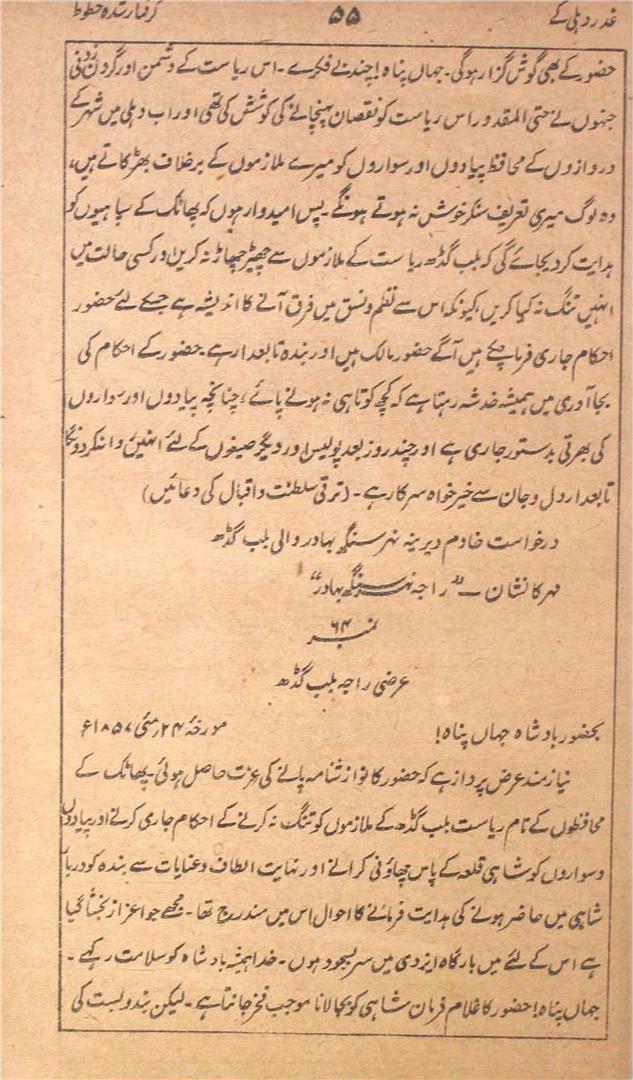 غدر دہلی کے ۵۵ گرفتار شدہ خطوط
حضور کے بھی گوش گزار ہوگی۔ جہاں پناہ! چند بے فکرے۔ اس ریاست کے دشمن اور گردن زدنی
جنہوں نے حتی المقدور اس ریاست کو نقصان پہنچانے کی کوشش کی تھی اور اب دہلی میں شہر کے
دروازوں کے محافظ پیادوں اور سواروں کو میرے ملازموں کے برخلاف بھڑکاتے ہیں،
وہ لوگ میری تعریف سنکر خوش نہ ہوتے ہونگے۔ پس امیدوار ہوں کہ پھاٹک کے سپاہیوں کو
ہدایت کر دیجائے گی کہ بلب گڈھ ریاست کے ملازموں سے چھیڑ چھاڑ نہ کریں اور کسی حالت میں
انہیں تنگ نہ کیا کریں، کیونکہ اس سے نظم ونسق میں فرق آنے کا اندیشہ ہے جسکے لئے حضور
احکام جاری فرما چکے ہیں آگے حضور مالک ہیں اور بندہ تابعدار ہے۔ حضور کے احکام کی
بجا آوری میں ہمیشہ خدشہ رہتا ہے کہ کچھ کوتاہی نہ ہونے پائے، چنانچہ پیادوں اور سواروں
کی بھرتی بدستور جاری ہے اور چند روز بعد پولیس اور دیگر صیغوں کے لئے انہیں روانہ کر دونگا
تابعدار دل و جان سے خیر خواہ سرکار ہے۔ (ترقی سلطنت و اقبال کی دعائیں)
درخواست خادم دیرینہ نہر سنگھ بہادر والی بلب گڈھ
مہر کا نشان ــ ”راجہ نہر سنگھ بہادر“
نمبر ۶۴
عرضی راجہ بلب گڈھ
بحضور بادشاہ جہاں پناہ! مورخہ ۲۴ مئی ۱۸۵۷ء
نیازمند عرض پرداز ہے کہ حضور کا نوازشنامہ پانے کی عزت حاصل ہوئی۔ پھاٹک کے
محافظوں کے نام ریاست بلب گڈھ کے ملازموں کو تنگ نہ کرنے کے احکام جاری کرنے اور پیادوں
و سواروں کو شاہی قلعہ کے پاس چھاؤنی کرانے اور نہایت الطاف و عنایات سے بندہ کو دربار
شاہی میں حاضر ہونے کی ہدایت فرمانے کا احوال اس میں مندرج تھا۔ مجھے جو اعزاز بخشا گیا
ہے اس کے لئے میں بارگاہ ایزدی میں سر بسجود ہوں۔ خدا ہمیشہ بادشاہ کو سلامت رکھے۔
جہاں پناہ! حضور کا غلام فرمان شاہی کو بجا لانا موجب فخر جانتا ہے۔ لیکن بندوبست کی